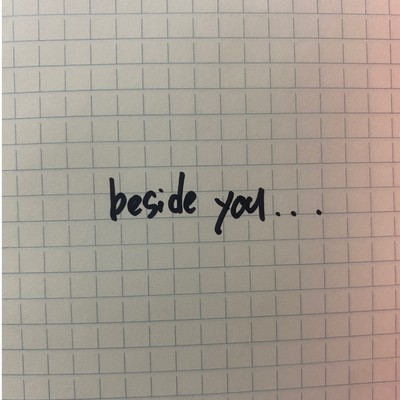 beside you...